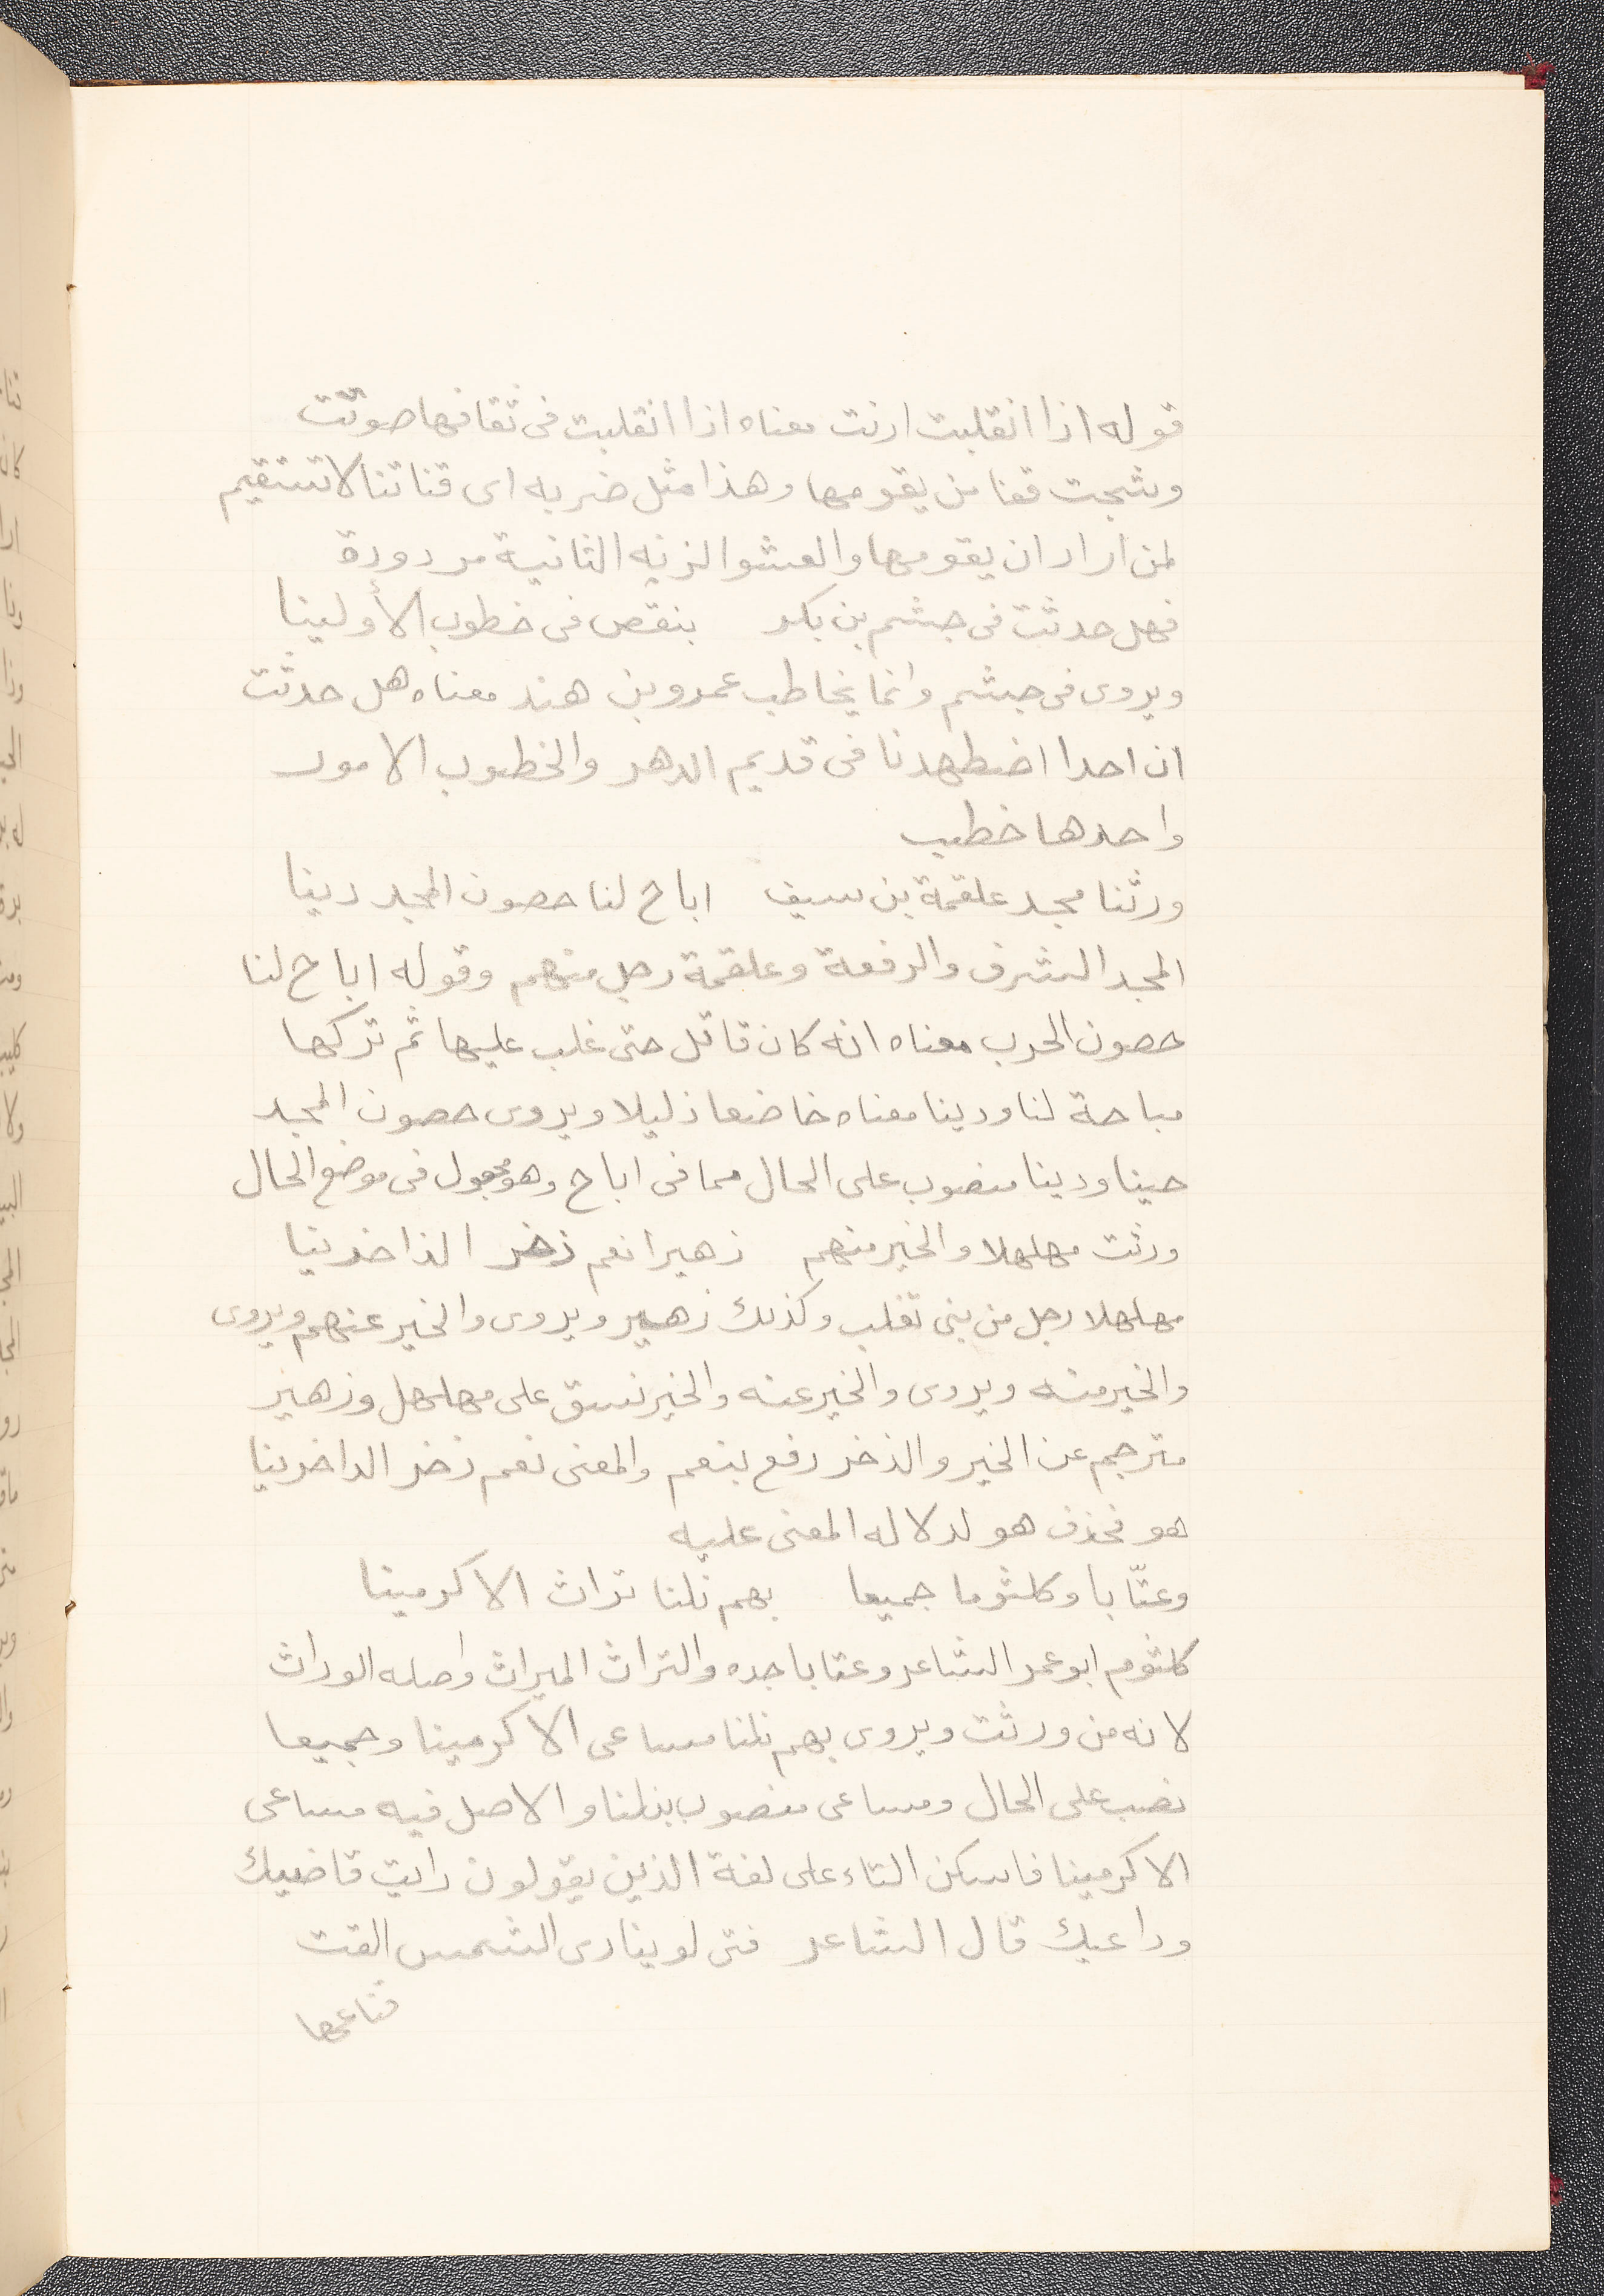 قوله اذا انقلبت ارنت معناه اذا انقلبت فى ثقافها صوتت
وشجت قفا من يقومها وهذا مثل ضربه اى قناتنا لا تستقيم
لمن اراد ان يقومها والعشوالزنه الثانية مردودة
فهل حدثت فى جشم بن بكر بنقص فى خطوب الأولينا
ويروى فى جشم وانما يخاطب عمرو بن هند معناه هل حدثت
ان احدا اضطهدنا فى قديم الدهر والخطوب الامور
واحدها خطب
ورثنا مجد علقمة بن سيف اباح لنا حصون المجد دينا
المجد الشرف والرفعة وعلقمة رجل منهم وقوله اباح لنا
حصون الحرب معناه انه كان قاتل حتى غلب عليها ثم تركها
مباحة لنا ودينا معناه خاضعا ذليلا ويروى حصون المجد
حينا ودينا منصوب على الحال مما فى اباح وهو مجهول فى موضع الحال
ورثت مهلهلا والخير منهم زهيرا نعم ذخر الذاخرينا
مهلهلا رجل من بنى تغلب وكذلك زهير ويروى والخير عنهم ويروى
والخير منه ويروى والخير عنه والخير نسق على مهلهل وزهير
مترجم عن الخير والذخر رفع بنعم والمعنى نعم ذخر الداخرينا
هو فحذف هو لدلاله المعنى عليه
وعتّابا وكلثوما جميعا بهم نلنا تراث الاكرمينا
كلثوم ابو عمر الشاعر وعتابا جده والتراث الميراث واصله الوراث
لانه من ورثت ويروى بهم نلنا مساعى الاكرمينا وجميعا
نصب على الحال ومساعى منصوب بنلنا والاصل فيه مساعى
الاكرمينا فاسكن التاء على لغة الذين يقولون رايت قاضيك
وداعيك قال الشاعر فتى لو ينادى الشمس القت
قناعها